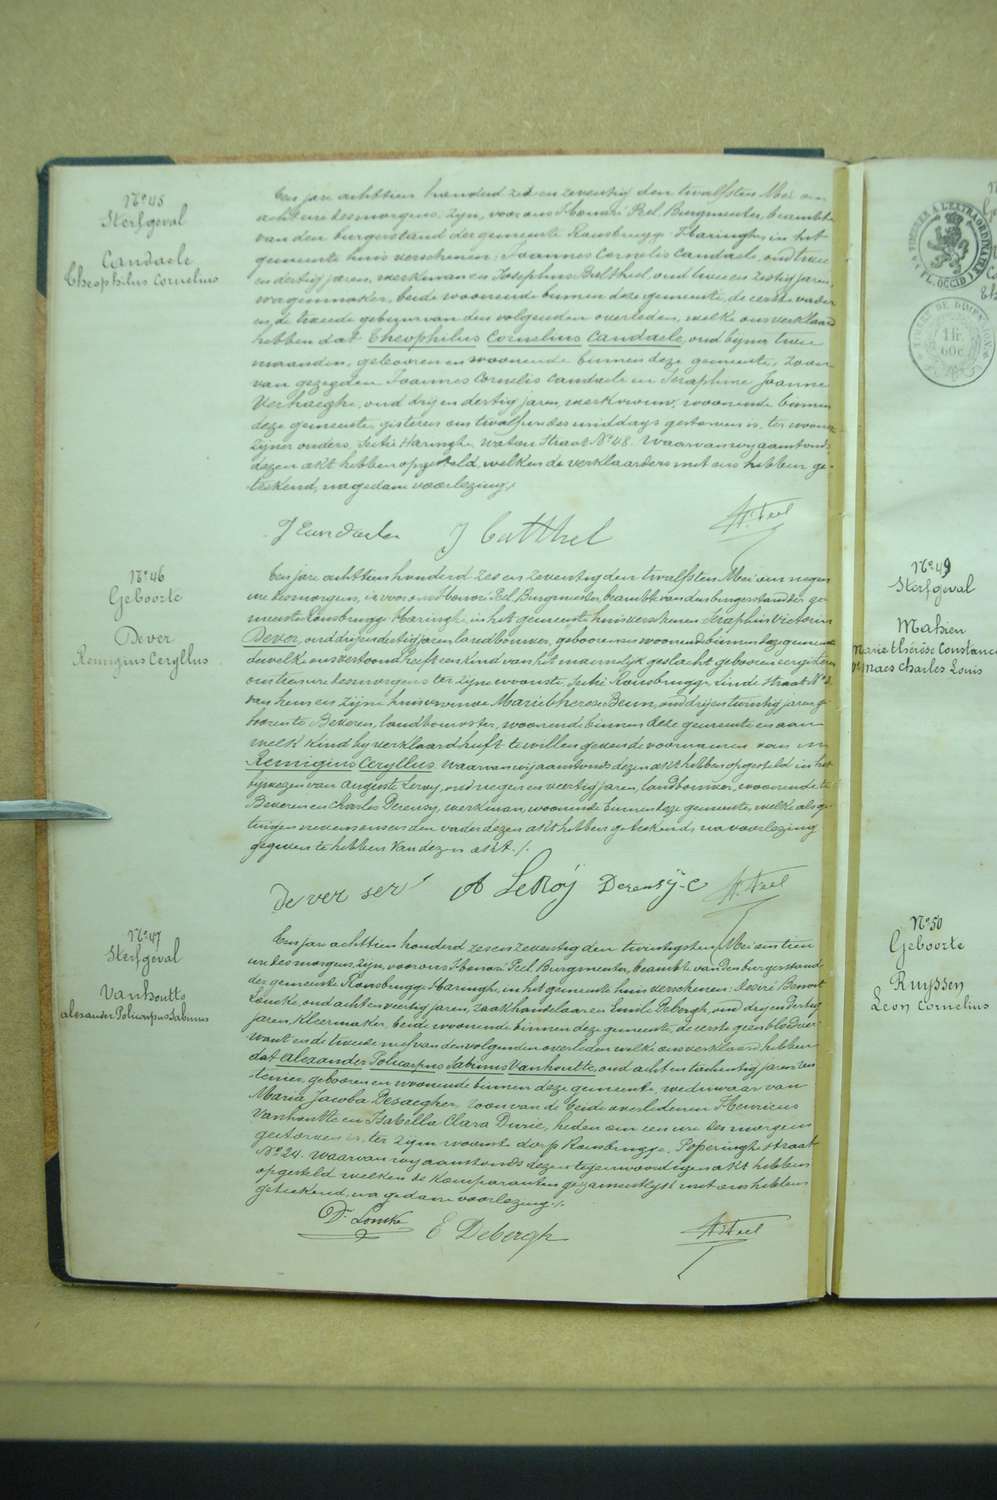 N° 45
Sterfgeval
Candaele
Theophilus Cornelius
Een jare achttien honderd zes en zeventig den twalfsten Mei om
acht ure des morgens, zijn, voor ons Honoré Peel, Burgmeester, beambte
van den burgerstand der gemeente Rousbrugge-Haringhe, in het
gemeente huis verschenen: Joannes Cornelis Candaele, oud twee
en dertig jaren, werkman en Josephus Batthel, oud twee en zestig jaren,
wagenmaker, beide woonende binnen deze gemeente, de eerste vader
en de tweede gebuur van den volgenden overleden, welke ons verklaard
hebben dat Theophilus Cornelius Candaele, oud bijna twee
maanden, geboren en woonende binnen deze gemeente, zoon
van gezegden Joannes Cornelis Candaele en Seraphine Joanne
Verhaeghe, oud drij en dertig jaren, werkvrouw, woonende binnen
deze gemeente, gisteren om twalf ure des middags gestorven is, ter woonst
zijner ouders, sectie Haringhe, straat N° 48. Waarvan wij aanstonds
dezen akt hebben opgesteld, welken de verklaarders met ons hebben ge-
teekend, na gedane voorlezing./
J Candaele J Batthel H. Peel
N° 46
Geboorte
Dever
Remigius Ceryllus
Een jare achttien honderd zes en zeventig den twalfsten Mei om negen
ure des morgens, is voor ons Honoré Peel, Burgmeester, beambte van den burgerstand der ge-
meente Rousbrugge-Haringhe, in het gemeente huis verschenen Seraphin Victorin
Dever, oud drij en dertig jaren, landbouwer, geboren en woonende binnen deze gemeente
dewelke ons vertoond heeft een kind van het mannelijk geslacht, geboren eergisteren
om ure des morgens ter zijne woonste, sectie Rousbrugge, Linde straat N° 2.
van hem en zijne huisvrouw Marie Therese Beun, oud drij en twintig jaren, ge-
boren te Beveren, landbouwster, woonende binnen deze gemeente en aan
welk kind hij verklaard heeft te willen geven de voornamen van
Remigius Ceryllus. Waarvan wij aanstonds dezen akt hebben opgesteld in het
bijwezen van Auguste Leroy, oud negen en veertig jaren, landbouwer, woonende te
Beveren en Charles Derensy, werkman, woonende binnen deze gemeente, welke als ge-
tuigen nevens ons en den vader dezen akt hebben geteekend, na voorlezing
gegeven te hebben van dezen akt./.
Dever ser A LeRoÿ Derensÿ-c H. Peel
N° 47
Sterfgeval
Vanhoutte
Alexander Policarpus Sabinus
Een jare achttien honderd zes en zeventig den twintigsten Mei om tien
ure des morgens, zijn, voor ons Honoré Peel, Burgmeester, beambte van den burgerstand
der gemeente Rousbrugge-Haringhe, in het gemeente huis verschenen: Desiré Benoit
Loncke, oud acht en veertig jaren, zaakhandelaar en Emile Debergh, oud drij en dertig
jaren, kleermaker, beide woonende binnen deze gemeente, de eerste geen bloedver-
want en de tweede neef van den volgenden overleden welke ons verklaard hebben
dat Alexander Policarpus Sabinus Vanhoutte, oud acht en tachentig jaren, ren-
tenier, geboren en woonende binnen deze gemeente, weduwaar van
Maria Jacoba Desaegher, zoon van de beide overledenen Henricus
Vanhoutte en Isabella Clara Durie, heden om een ure des morgens
gestorven is, ter zijne woonste dorp Rousbrugge, Poperinghe straat
N° 24. Waarvan wij aanstonds dezen tegenwoordigen akt hebben
opgesteld welken de komparanten gezamentlijk met ons hebben
geteekend, na gedane voorlezing./.
Dr Loncke E Debergh H. Peel
TIMBRE A L'EXTRAORDINAIRE
FL. OCCID
TIMBRE DE DIMENSION
1 fr.
60c
N° 49
Sterfgeval
Mahieu
Marie Thérèse Constance
Maes Charles Louis
N° 50
Geboorte
Ruyssen
Leon Cornelius